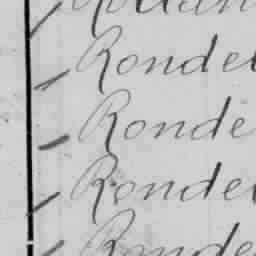 Rondel
Ronde
Rondel
Ronde